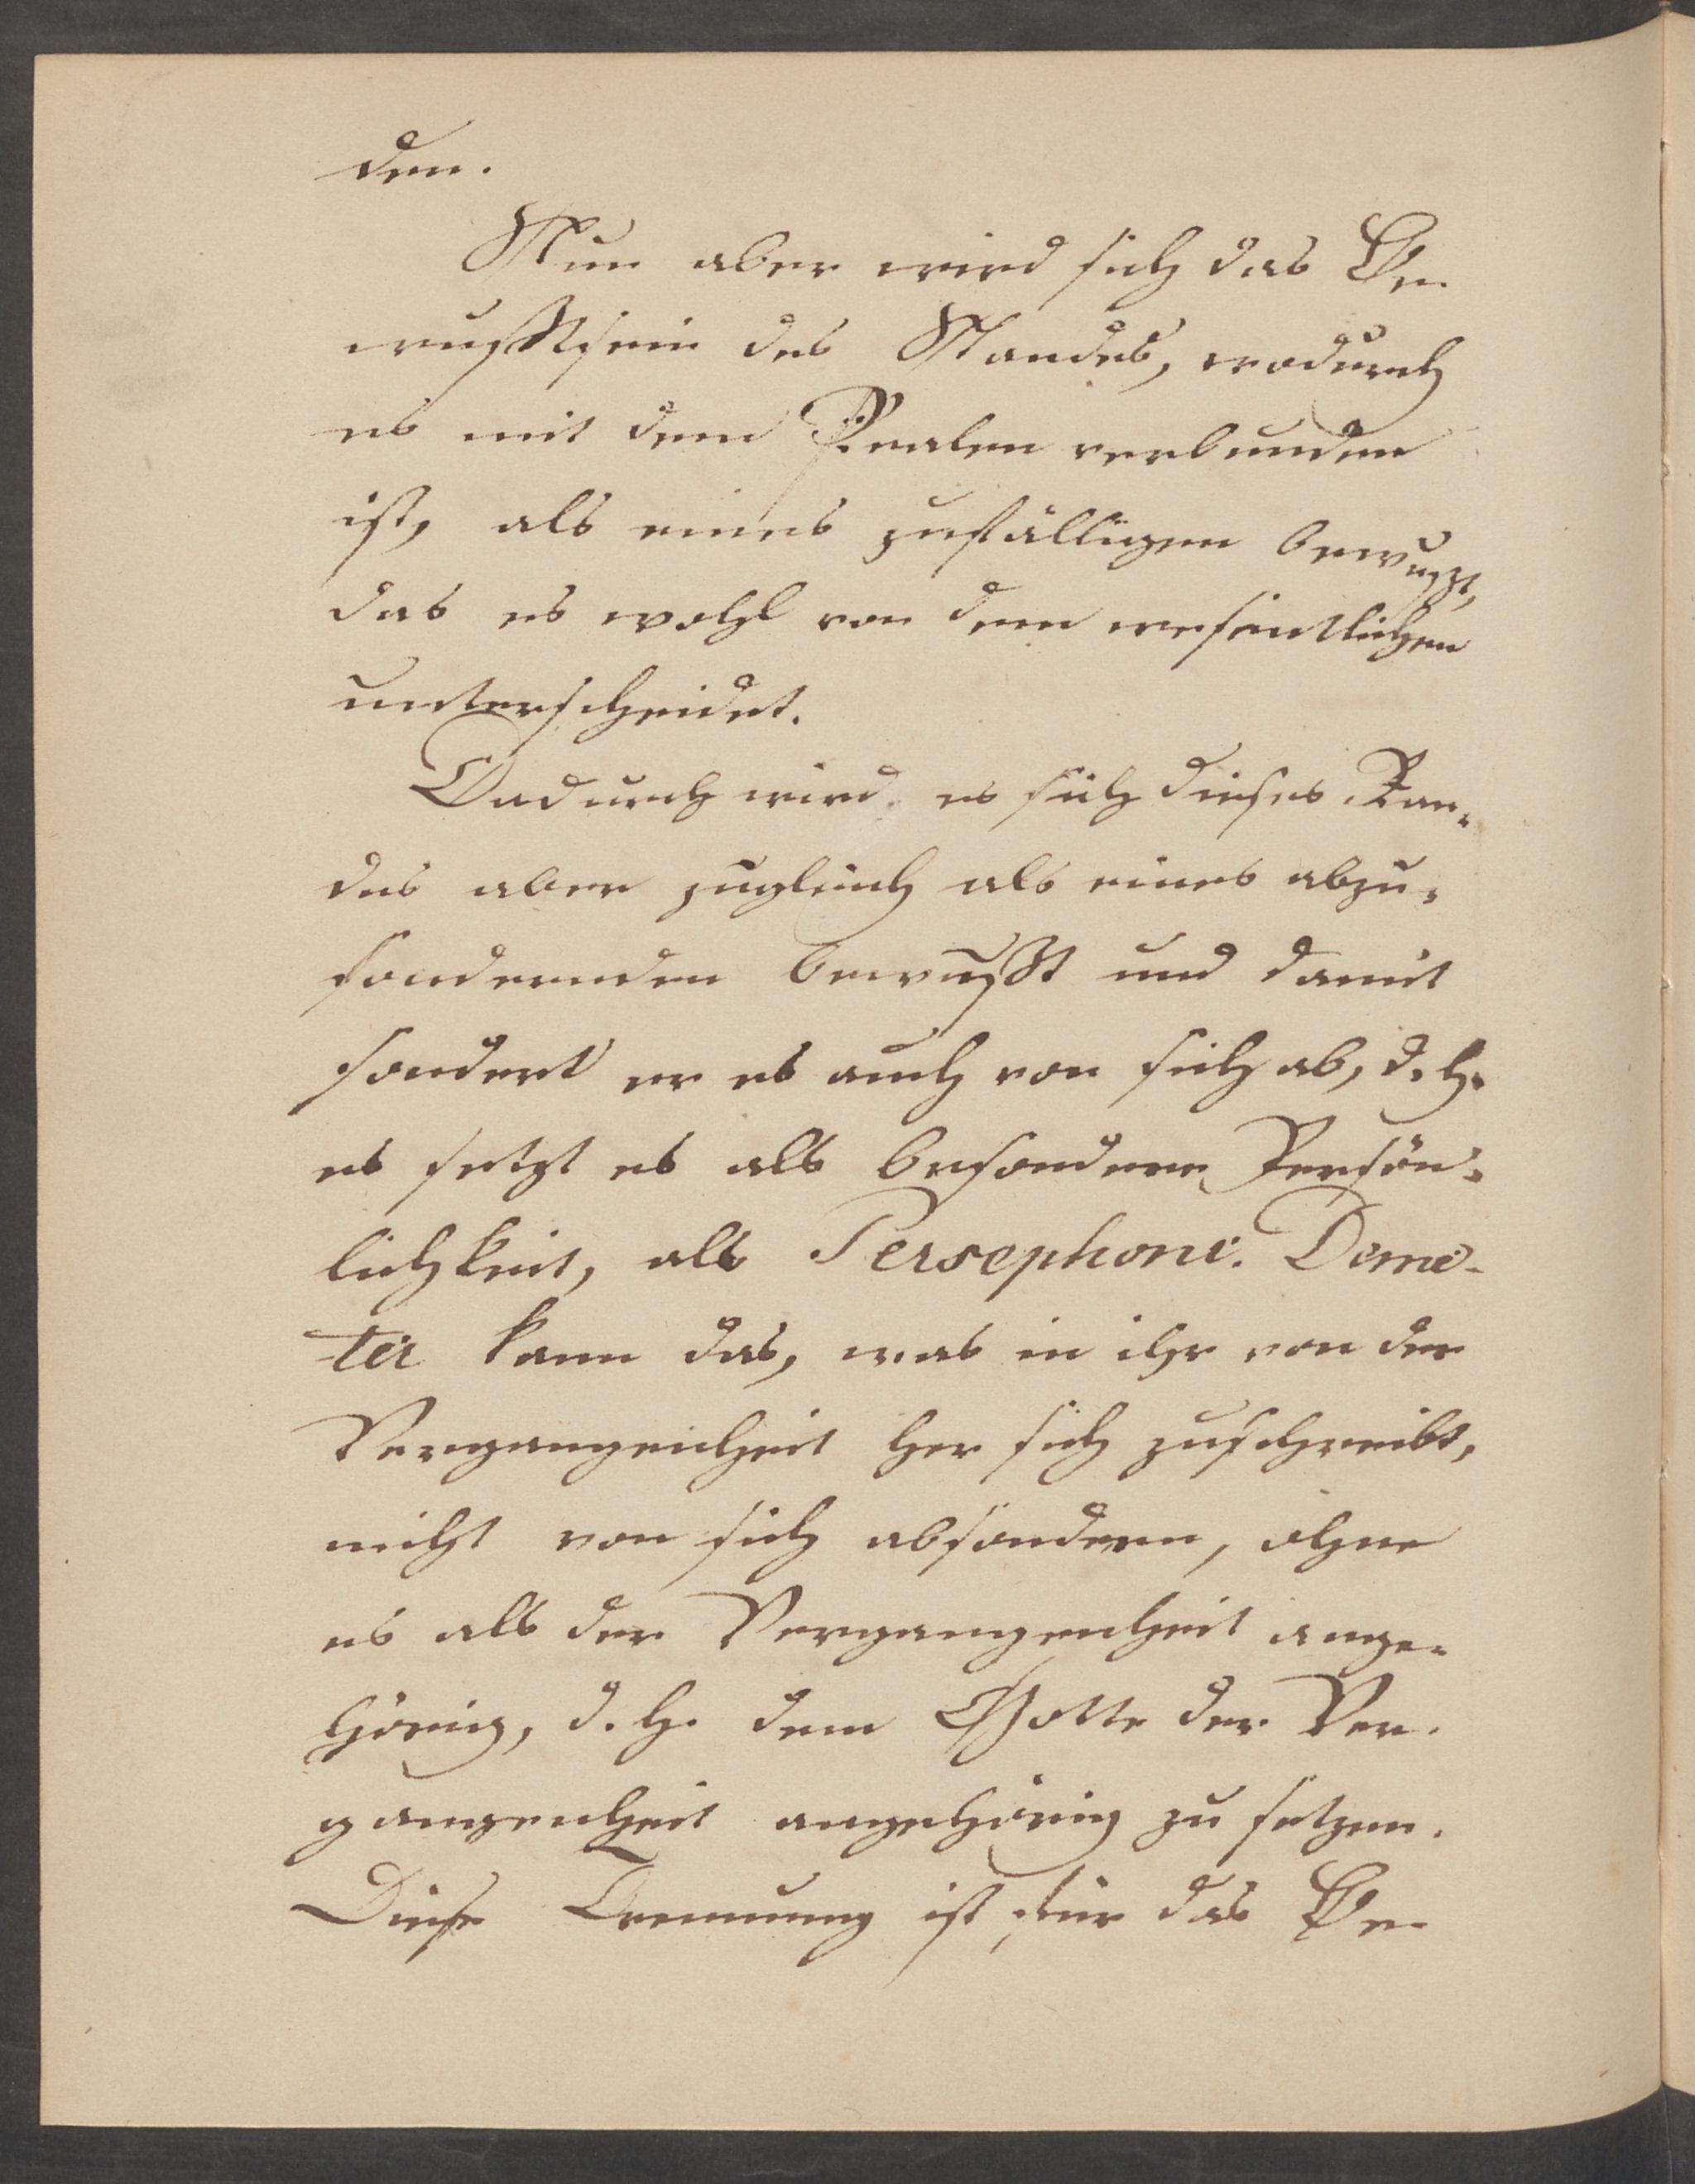 den.
Nun aber wird sich das Be-
wußtsein des Standes, wodurch
es mit dem Realen verbunden
ist, als eines zufälligen bewußt,
das es wohl von dem wesentlichen
unterscheidet.
Dadurch wird es sich dieses Ban-
des aber zugleich als eines abzu-
sondernden bewußt und damit
sondert er es auch von sich ab, d. h.
es setzt es als besondere Persön-
lichkeit, als Persephone. Deme-
ter kann das, was in ihr von der
Vergangenheit her sich zuschreibt,
nicht von sich absondern, ohne
es als der Vergangenheit ange-
hörig, d. h. dem Gotte der Ver-
gangenheit angehörig zu setzen.
Diese Trennung ist für das Be-